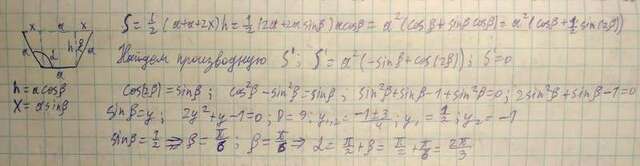 x a x
a h β a
α
a
S = 1/2 (a+a+2x)h = 1/2 (2a+2a sinβ) a cosβ = a²(cosβ + sinβ cosβ) = a²(cosβ + 1/2 sin(2β))
Найдем производную S'; S' = a²(-sinβ + cos(2β)); S' = 0
h = a cosβ
cos(2β) = sinβ; cos²β - sin²β = sinβ; sin²β + sinβ - 1 + sin²β = 0; 2sin²β + sinβ - 1 = 0
x = a sinβ
sinβ = y; 2y² + y - 1 = 0; D = 9; y₁,₂ = (-1±3)/4; y₁ = 1/2; y₂ = -1
sinβ = 1/2 ⇒ β = π/6; β = π/6 ⇒ α = π/2 + β = π/2 + π/6 = 2π/3